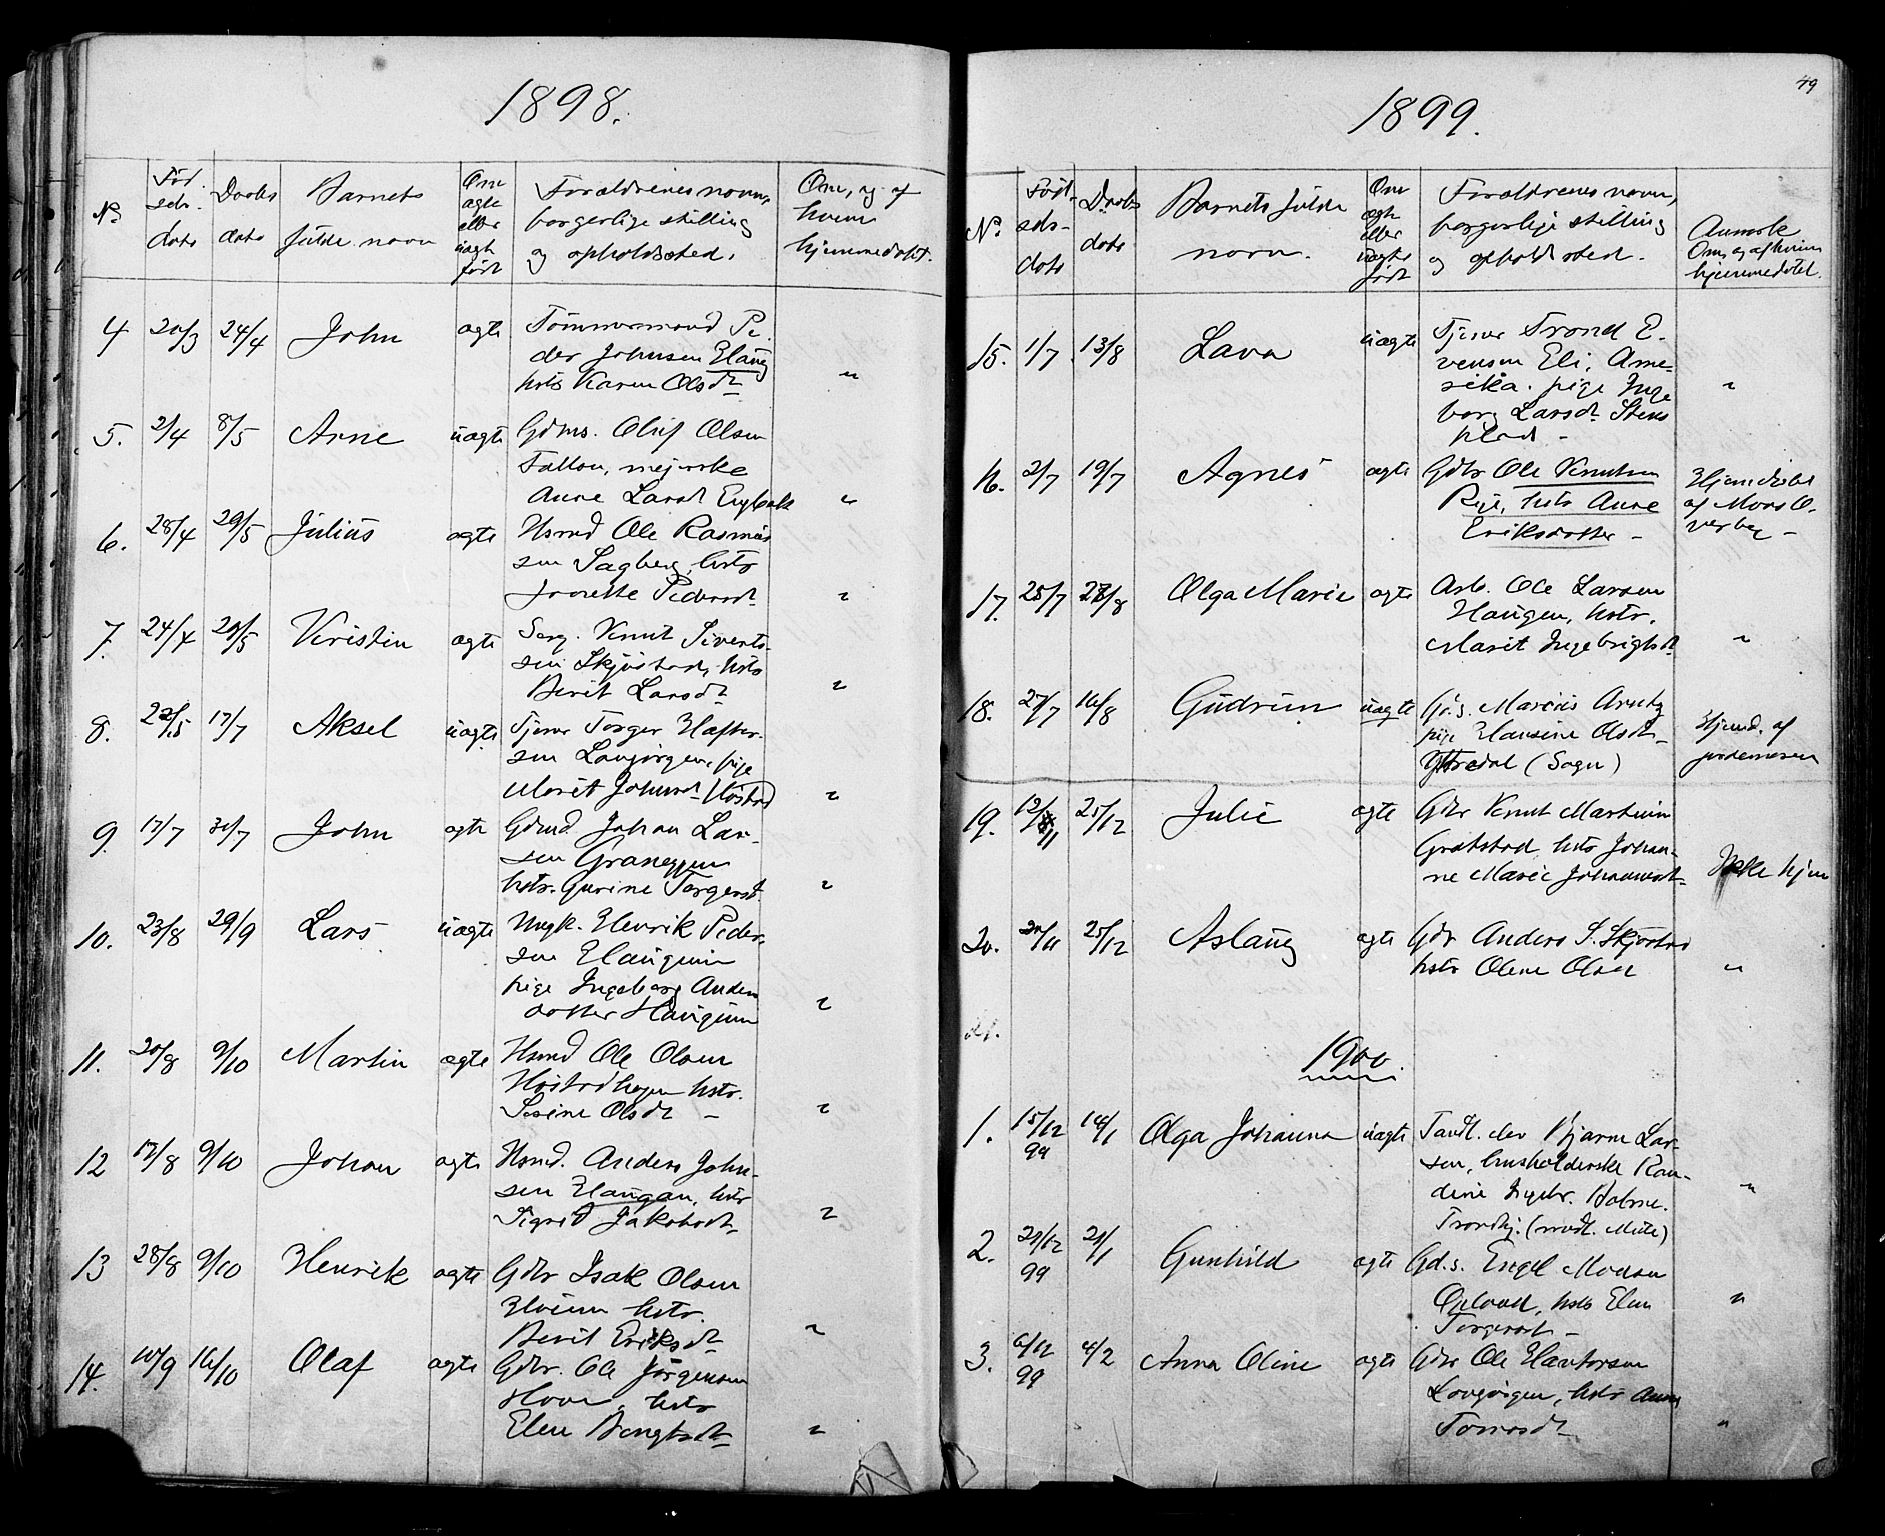 1898.
No.
Fød
sels-
dato
Daabs
dato
Barnets
fulde navn
Om
ægte
eller
uægte
født
Forældrenes navn,
borgerlige stilling
og opholdssted.
Om, og af
hvem
hjemmedøbt.
4 20/3 24/4 John ægte Tømmermand Pe
der Johnsen Haug
hstr Karen Olsdt "
5. 2/4 8/5 Arne uægte Gdms. Oluf Olsen
mejerske
Anne Larsd Engbæk "
6. 28/4 29/5 Julius ægte Hsmd Ole Rasmus
sen Sagberg, hstr
Jonette Pedersdt "
7. 24/4 29/5 Kristin ægte Serg. Knut Siverts-
sen Skjøstad, hstr
Berit Larsdt "
8. 22/5 17/7 Aksel uægte Tjener Torger Hafter-
sen Langørgen, pige
Marit Johnsdt Høstad "
9. 17/7 31/7 John ægte Gdmd. Johan Lar-
sen Graneggen
hstr. Gurine Torgersdt. "
10. 23/8 29/9 Lars uægte Ungk. Henrik Peder-
sen Haugum
pige Ingeborg Anders
datter Haugum "
11. 20/8 9/10 Martin ægte Hsmd Ole Olsen
Høstadhagen hstr.
Sesine Olsdt - "
12 17/8 9/10 Johan ægte Hsmd. Anders John-
sen Haugan, hstr
Sigrid Jakobsdt "
13 28/8 9/10 Henrik ægte Gdbr Isak Olsen
hstr.
Berit Eriksdt "
14. 10/9 16/10 Olaf ægte Gdbr. Ole Jørgensen
Hove, hstr
Elen Bengtsdt "
49
1899.
No.
Fød-
sels-
dato
Daabs
dato
Barnets fulde
navn.
Om
ægte
eller
uægte
født
Forældrenes navn,
borgerlige stilling
og opholdssted.
Anmerk
Om, og af hvem
hjemmedøbt.
15. 1/7 13/8 Lava uægte Tjener Trond E-
vensen Eli, Ame-
rika. pige Inge
borg Larsdt Stens
plads - "
16. 2/7 19/7 Agnes ægte Gdbr Ole Knutsen
Rye, hstr Anne
Eriksdatter -
Hjemdøbt
af Mons O-
verby -
17. 25/7 27/8 Olga Marie ægte Arb. Ole Larsen
Haugen, hstr.
Marit Ingebrigtsdt "
18. 27/7 16/8 Gudrun uægte Gd.s. Marius
pige Hansine Olsdt-
Ytredal (Sogn)
Hjemd. af
jordemoren
19. 12/11 25/12 Julie ægte Gdbr Knut Martinsen
Grøtstad, hstr Johan-
ne Marie Johannesdt- Ikke hjem
20. 20/11 25/12 Aslaug ægte Gdbr Anders S. Skjøstad
hstr Oline Olsdt "
21.
1900.
1. 15/12 99 14/1 Olga Johanna uægte Tandl. elev Bjarne Lar-
sen, husholderske Ran-
dine Ingebr. Holme.
Trondhj. "
2. 21/12 99 21/1 Gunhild ægte Gd.s. Engel Monsen
Opland, hstr Elen
Torgersdt - "
3. 6/12 99 4/2 Anna Oline ægte Gdbr Ole Haftorsen
Langørgen, hstr Anne
Tomasdt "